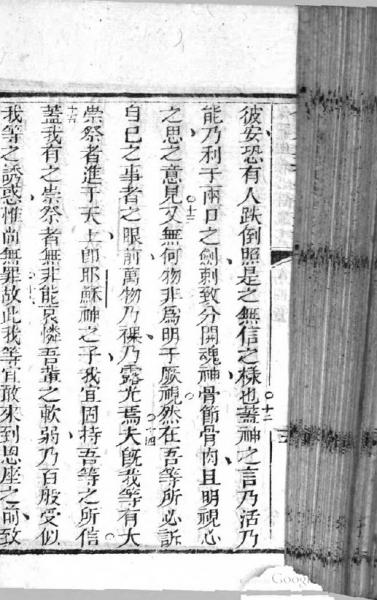 彼安恐有人跌倒照是之無信之樣也蓋神之言乃活乃
十二
能乃利于兩口之劍刺致分開魂神骨節骨肉且明視心
之思之意見又無何物非爲明于厥視然在吾等所必訴
十三
自己之事者之眼前萬物乃裸乃露光焉夫旣我等有大
十四
崇祭者進于天上卽耶穌神之子我宜固持吾等之所信
蓋我有之崇祭者無非能哀憐吾輩之軟弱乃百般受似
十五
我等之誘惑惟尚無罪故此我等宜敢來到恩座之前致
十六
Google